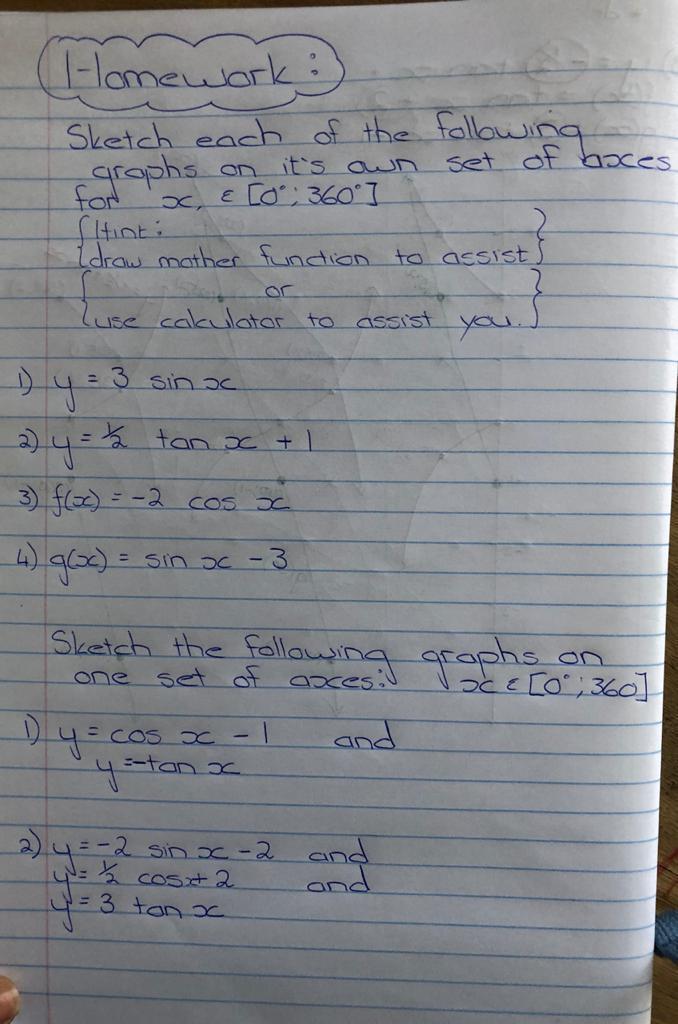 Homework:
Sketch each of the following
graphs on it's own set of axes
for x, ε [0°; 360°]
{Hint:
draw mother function to assist}
{or
use calculator to assist you.}
1) y = 3 sin x
2) y = ½ tan x + 1
3) f(x) = -2 cos x
4) g(x) = sin x - 3
Sketch the following graphs on
one set of axes: x ε [0°; 360]
1) y = cos x - 1 and
y = -tan x
2) y = -2 sin x - 2 and
y = ½ cosx + 2 and
y = 3 tan x